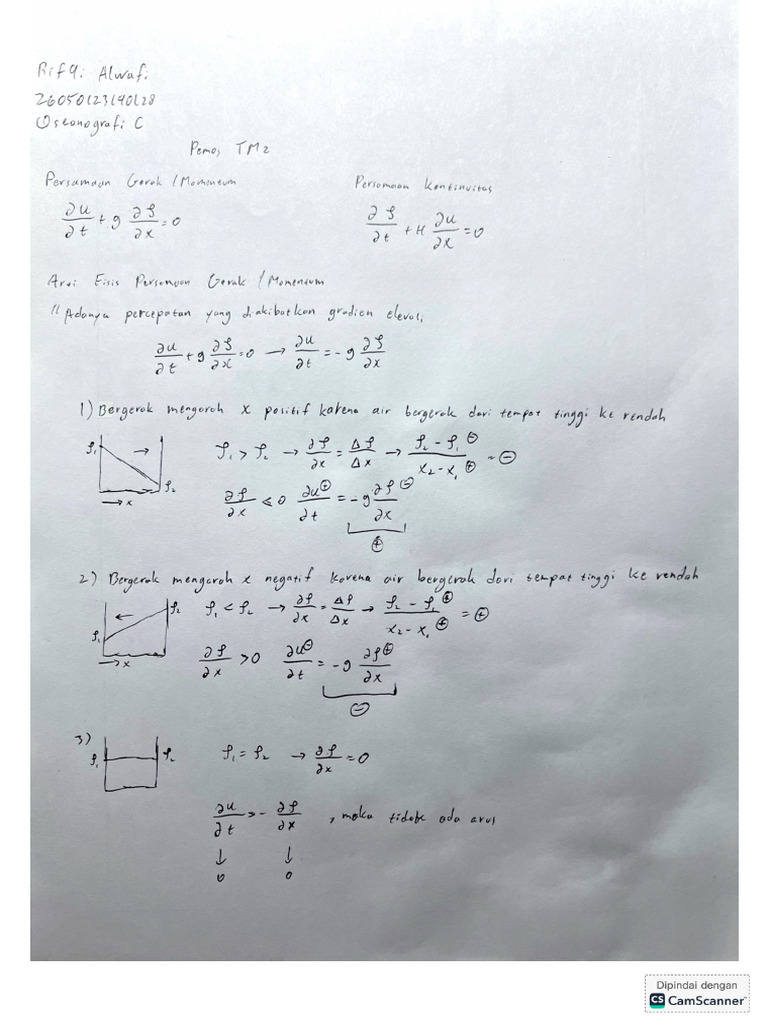 Rifqi Alwafi
26050123140128
Oseanografi C
Pemos TM2
Persamaan Gerak / Momentum    Persamaan Kontinuitas
∂u/∂t + g ∂ζ/∂x = 0    ∂ζ/∂t + H ∂u/∂x = 0
Arti Fisis Persamaan Gerak / Momentum
// Adanya percepatan yang diakibatkan gradien elevasi
∂u/∂t + g ∂ζ/∂x = 0 → ∂u/∂t = - g ∂ζ/∂x
1) Bergerak mengarah x positif karena air bergerak dari tempat tinggi ke rendah
ζ₁ → ζ₂ → x
ζ₁ > ζ₂ → ∂ζ/∂x = Δζ/Δx → (ζ₂ - ζ₁ ⊖)/(x₂ - x₁ ⊕) = ⊖
∂ζ/∂x < 0  ∂u⊕/∂t = - g ∂ζ⊖/∂x
⊕
2) Bergerak mengarah x negatif karena air bergerak dari tempat tinggi ke rendah
ζ₁ ← ζ₂ → x
ζ₁ < ζ₂ → ∂ζ/∂x = Δζ/Δx → (ζ₂ - ζ₁ ⊕)/(x₂ - x₁ ⊕) = ⊕
∂ζ/∂x > 0  ∂u⊖/∂t = - g ∂ζ⊕/∂x
⊖
3)
ζ₁ ζ₂
ζ₁ = ζ₂ → ∂ζ/∂x = 0
∂u/∂t = - ∂ζ/∂x , maka tidak ada arus
↓ ↓
0 0
Dipindai dengan
CS CamScanner™